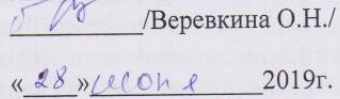 /Веревкина О.Н./
«28» июня 2019г.